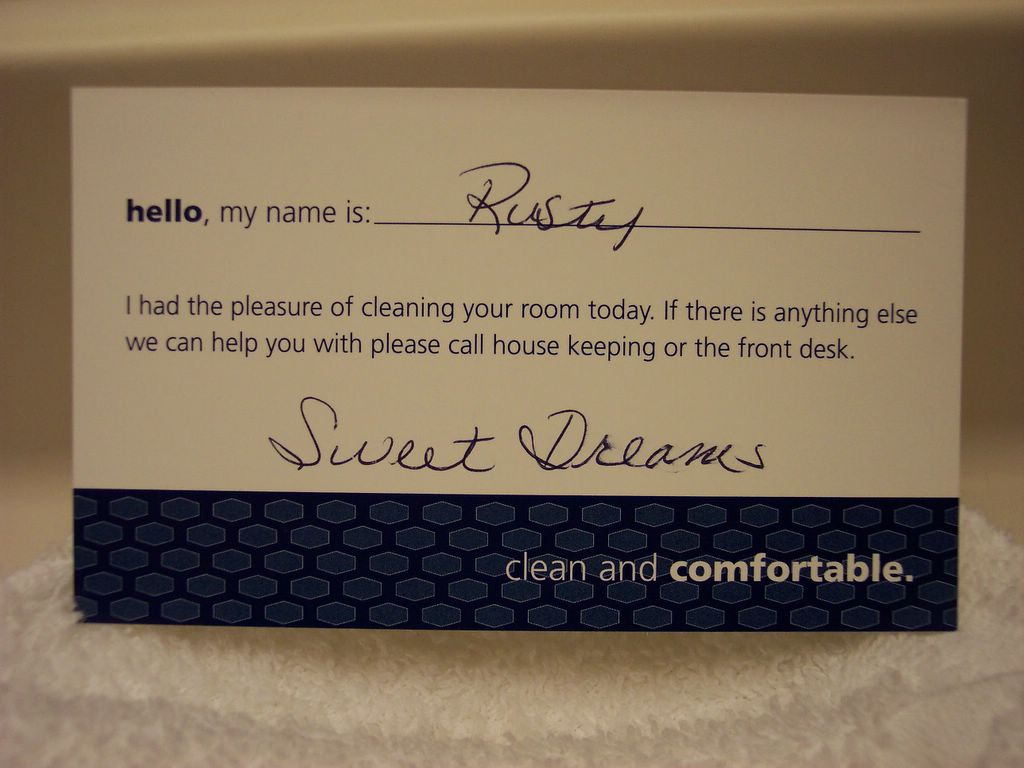 hello, my name is: Rusty
I had the pleasure of cleaning your room today. If there is anything else
we can help you with please call house keeping or the front desk.
Sweet Dreams
clean and comfortable.